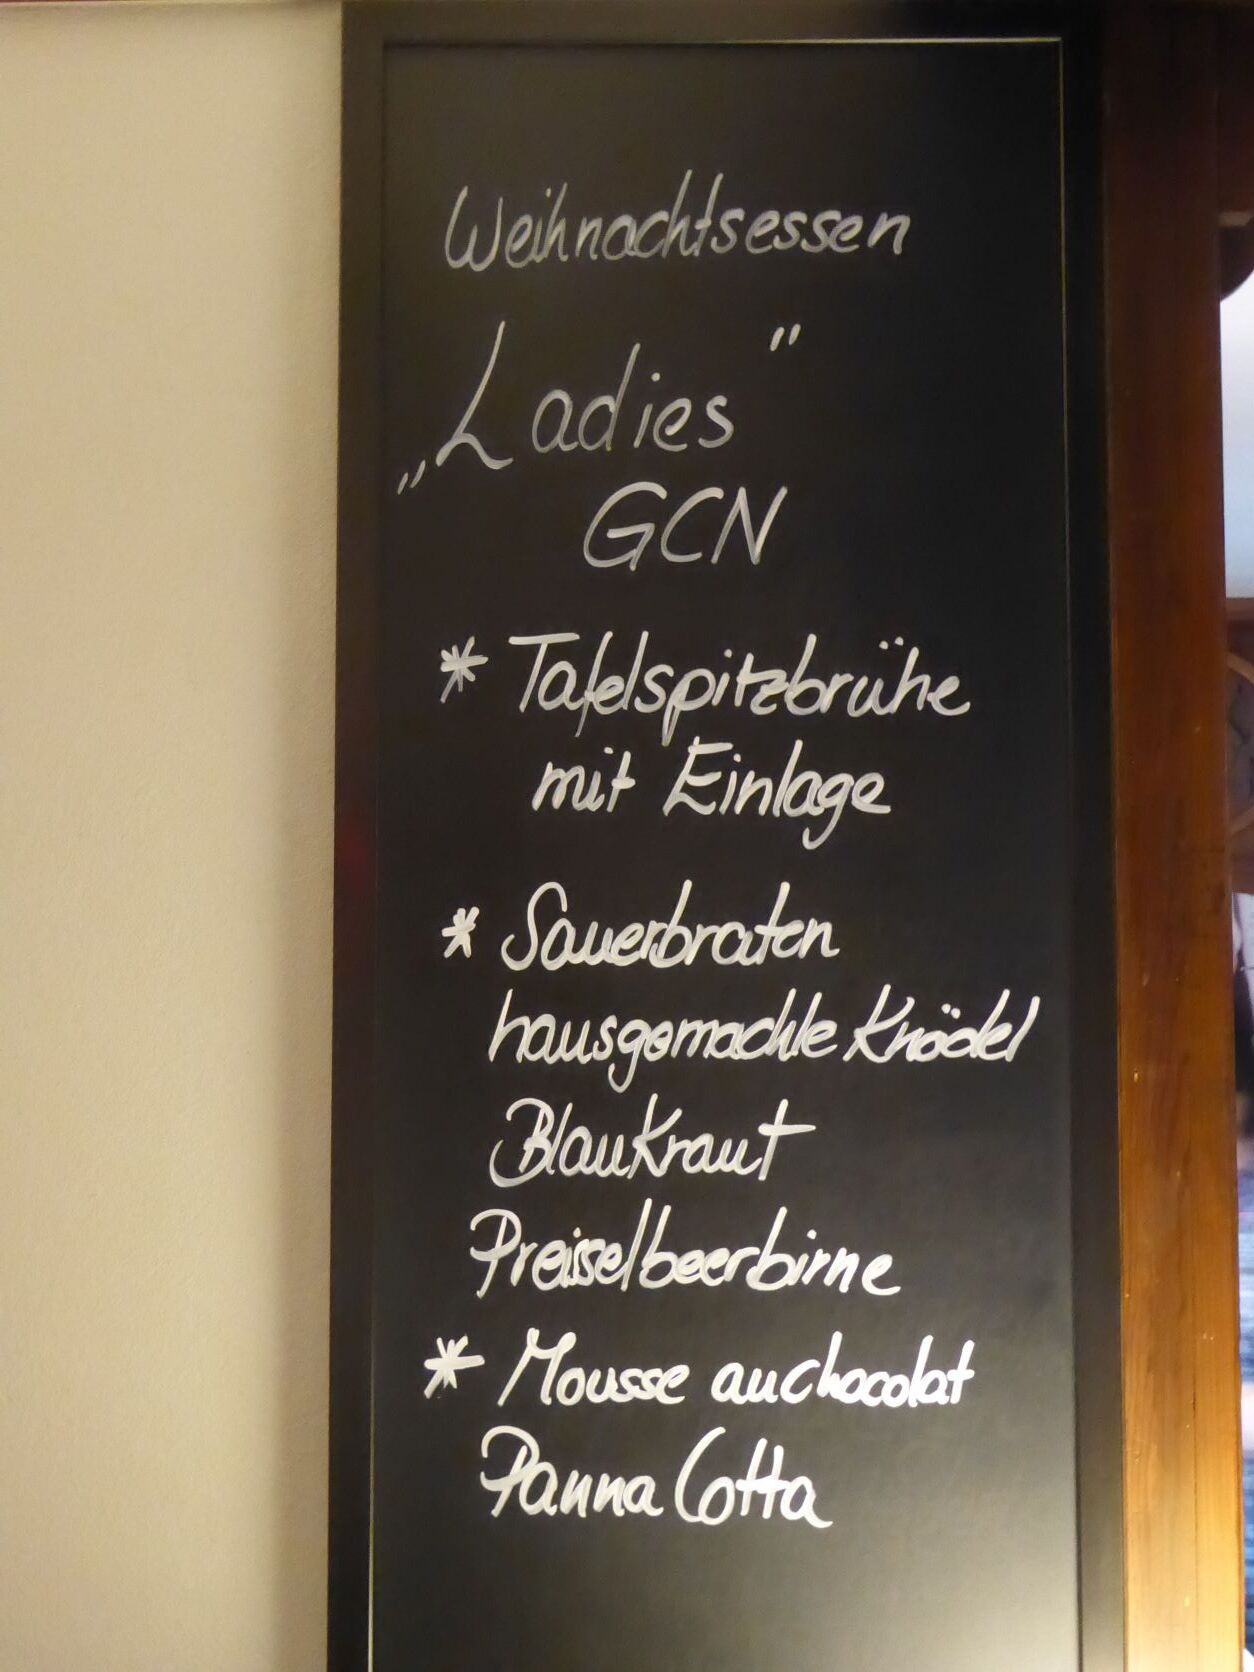 Weihnachtsessen
„Ladies"
GCN
* Tafelspitzbrühe
mit Einlage
* Sauerbraten
hausgemachte Knödel
Blaukraut
Preisselbeerbirne
* Mousse au chocolat
Panna Cotta